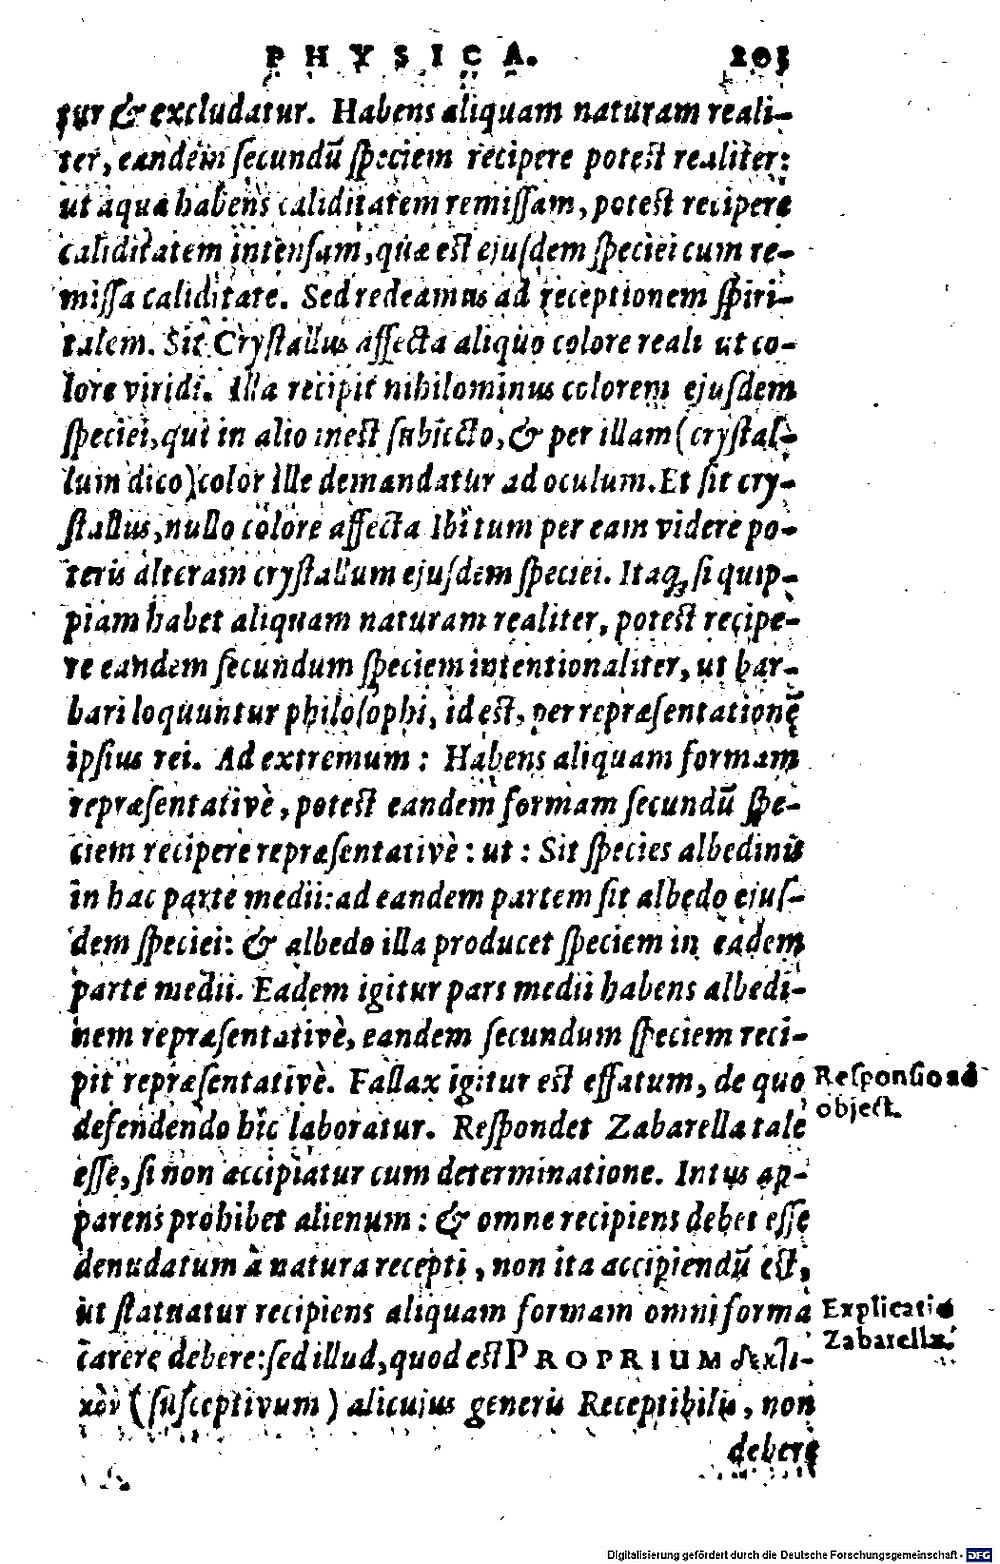 PHYSICA. 203
tur & excludatur. Habens aliquam naturam reali-
ter, eandem ſecundū ſpeciem recipere poteſt realiter:
ut aqua habens caliditatem remiſſam, poteſt recipere
caliditatem intenſam, quæ eſt ejuſdem ſpeciei cum re-
miſſa caliditate. Sed redeamus ad receptionem ſpiri-
talem. Sit Cryſtallus affecta aliquo colore reali ut co-
lore viridi. Illa recipit nihilominus colorem ejuſdem
ſpeciei, qui in alio ineſt ſubiecto, & per illam (cryſtal-
lum dico) color ille demandatur ad oculum. Et ſit cry-
ſtallus, nullo colore affecta Ibi tum per eam videre po-
teris alteram cryſtallum ejuſdem ſpeciei. Itaq; ſi quip-
piam habet aliquam naturam realiter, poteſt recipe-
re eandem ſecundum ſpeciem intentionaliter, ut bar-
bari loquuntur philoſophi, id eſt, per repræſentationē
ipſius rei. Ad extremum: Habens aliquam formam
repræſentativè, poteſt eandem formam ſecundū ſpe-
ciem recipere repræſentativè: ut: Sit ſpecies albedinis
in hac parte medii: ad eandem partem ſit albedo ejuſ-
dem ſpeciei: & albedo illa producet ſpeciem in eadem
parte medii. Eadem igitur pars medii habens albedi-
nem repræſentativè, eandem ſecundum ſpeciem reci-
pit repræſentativè. Fallax igitur eſt effatum, de quo
Reſponſio ad
object.
defendendo hîc laboratur. Reſpondet Zabarella tale
eſſe, ſi non accipiatur cum determinatione. Intus ap-
parens prohibet alienum: & omne recipiens debet eſſe
denudatum à natura recepti, non ita accipiendū eſt,
ut ſtatuatur recipiens aliquam formam omni forma
Explicatio
Zabarellæ.
carere debere: ſed illud, quod eſt PROPRIUM δεκτι-
κὸν (ſuſceptivum) alicujus generis Receptibilis, non
debere
Digitalisierung gefördert durch die Deutsche Forschungsgemeinschaft - DFG